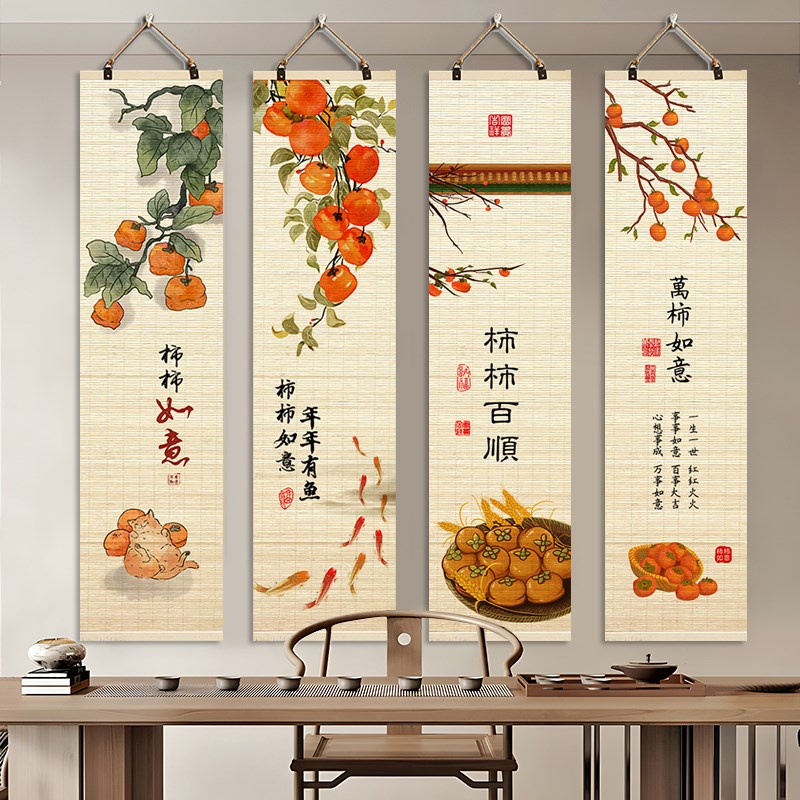 柿柿如意
柿柿如意
年年有魚
柿柿百順
萬柿如意
一生一世 红红火火
事事如意 百事大吉
心想事成 万事如意